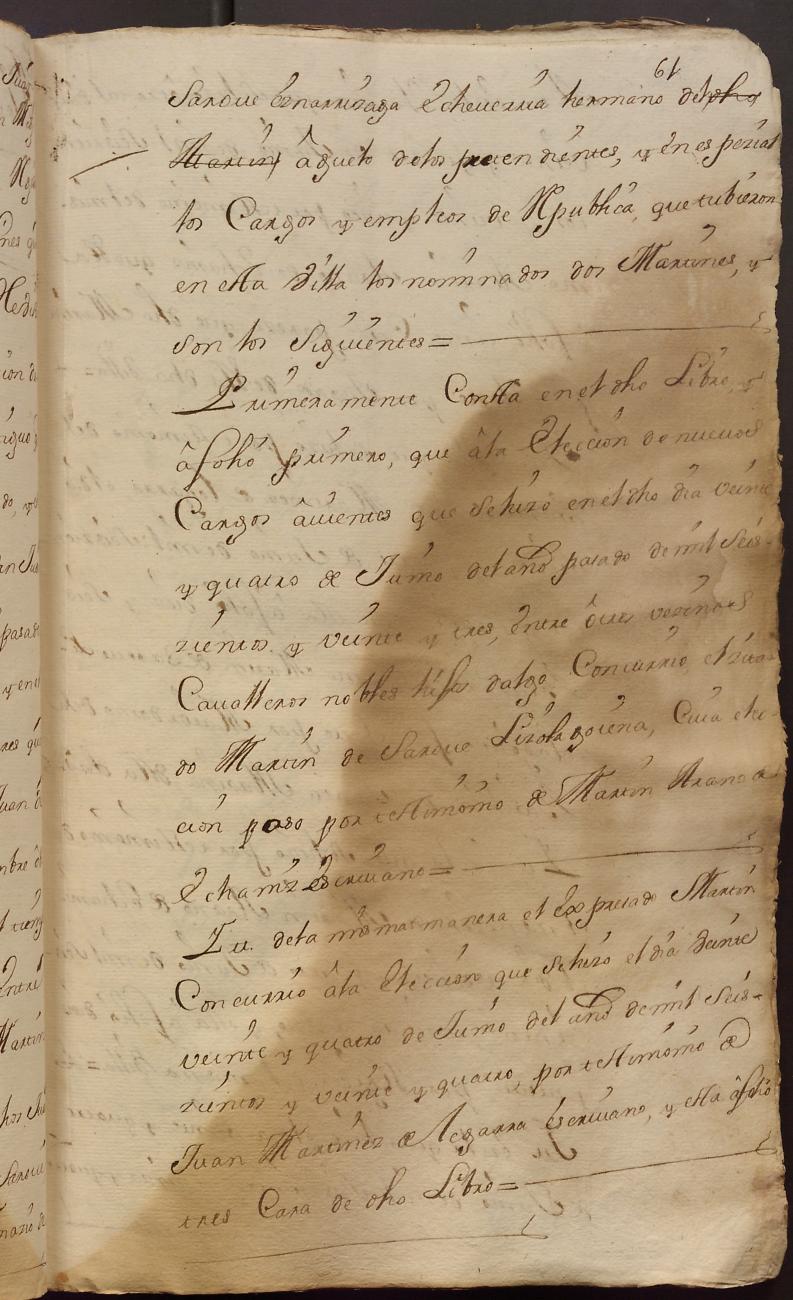 61
Sarove Yznarrizaga Echeverria hermano del dho
Martin, âguelo delos pretendientes, y en espezial
los Cargos y empleos de Republica, que tubieron
en esta Villa los nominados dos Martines, y
son los Siguientes =
Primeramente Consta en el dho Libro, y
â folio primero, que âla Eleccion de nuevos
Cargos âvientes que se hizo en el dho dia veinte
y quatro de Junio del año pasado de mil Seis-
zientos y veinte y tres, entre ôtros vezinos
Cavalleros nobles hijos dalgo Concurrio, el zita-
do Martin de Sarove Lizola goiena, Cuia elec-
cion paso por testimonio de Martin Arano de
Echamz Escrivano =
Yt. dela misma manera el Expresado Martin
Concurrio âla Eleccion que se hizo el dia Veinte
veinte y quatro de Junio del año de mil Seis-
zientos y veinte y quatro, por testimonio de
Juan Martinez de Legarra Escrivano, y esta â folio
tres Cara de dho Libro =